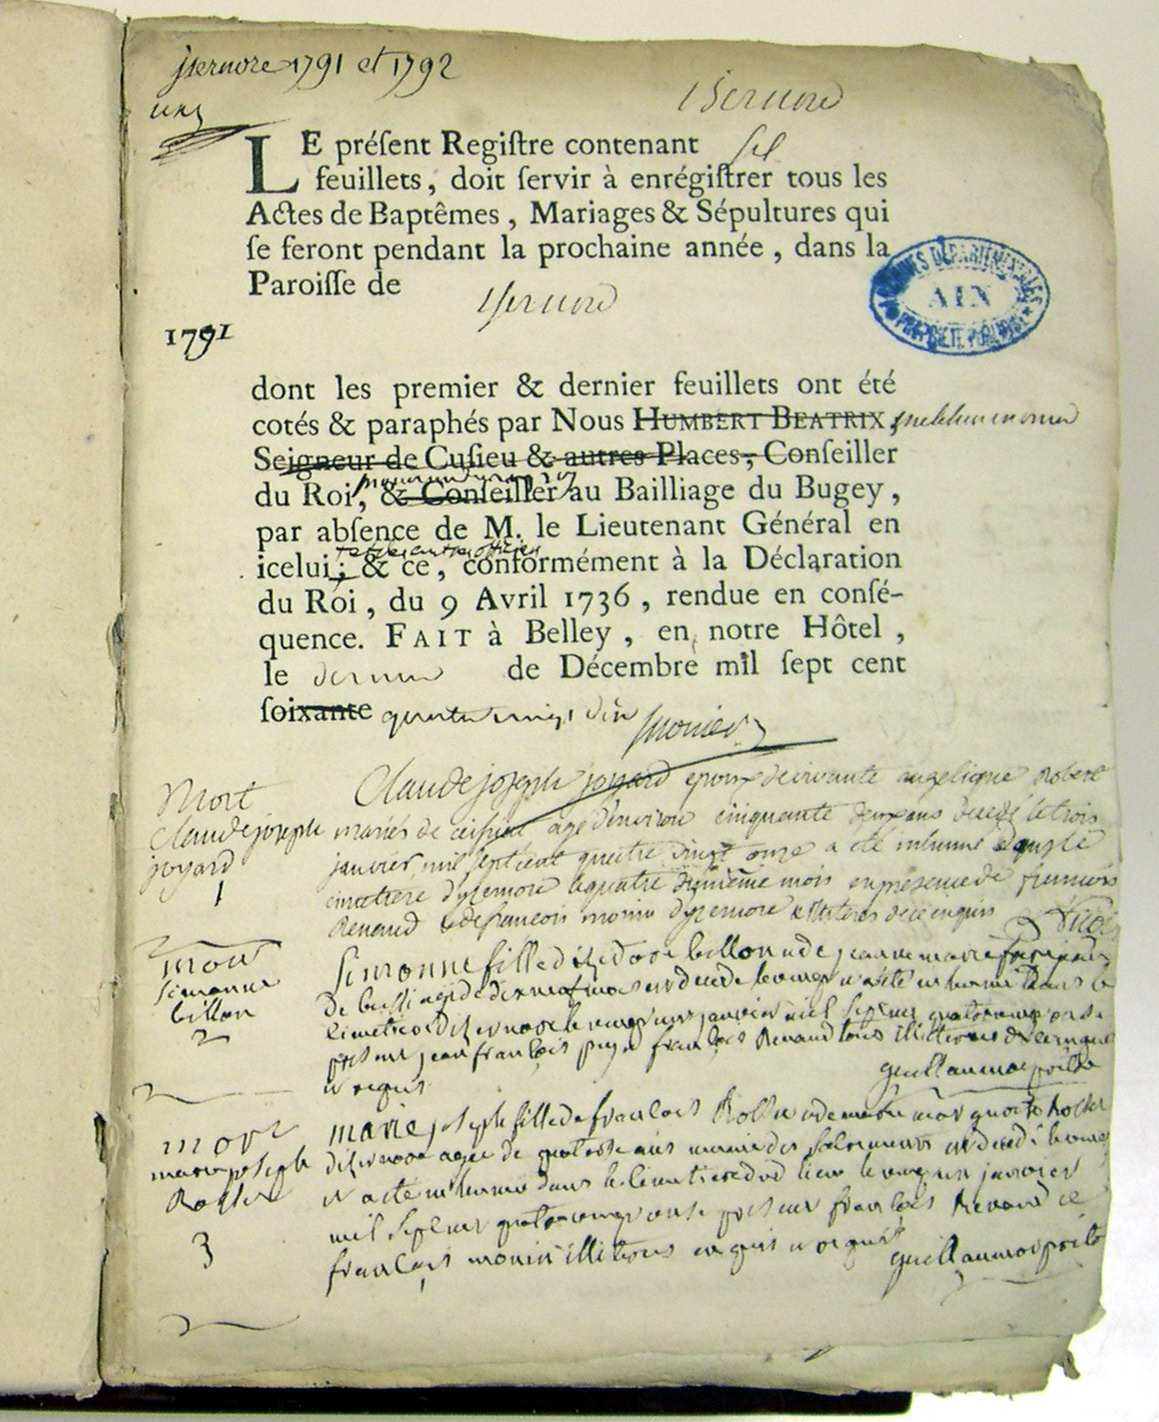 jsernore 1791 et 1792
un
isernore
LE préſent Regiſtre contenant
feuillets, doit ſervir à enrégiſtrer tous les
Actes de Baptêmes, Mariages & Sépultures qui
ſe feront pendant la prochaine année, dans la
Paroiſſe de isernore
ARCHIVES DÉPARTEMENTALES
AIN
PROPRIÉTÉ PUBLIQUE
1791
dont les premier & dernier feuillets ont été
cotés & paraphés par Nous HUMBERT BEATRIX,
Seigneur de Cuſieu & autres Places, Conſeiller
du Roi, & Conſeiller au Bailliage du Bugey,
par abſence de M. le Lieutenant Général en
et des autres officiers
icelui; & ce, conformément à la Déclaration
du Roi, du 9 Avril 1736, rendue en conſé-
quence. FAIT à Belley, en notre Hôtel,
le dernier de Décembre mil ſept cent
ſoixante quatre vingt dix
monier
Mort
Claude joseph
joyard
1
Claude joseph joyard epoux de vivante angelique Robert
mariés de agé d'environ cinquante deux ans decedé le trois
janvier mil sept cent quatre vingt onze a été inhumé dans le
cimetiere d'yzernore le quatre du même mois en presence de francois
Renaud & de francois monin d'yzernore illiteres de ce enquis
mort
simonne
billon
2
Simonne fille de billon et de jeanne marie
de agée de dix neuf mois est decedé le vingt et a été inhumé dans le
cimetiere d'isernore le vingt un janvier mil sept cent quatre vingt onze
present jean francois francois Renaud tous illitires de ce enquis
et requis
guillaumot
mort
marie joseph
Rosset
3
marie joseph fille de francois Rosset et de marguerite Rosset
d'isernore agée de quatorze ans munie des sacrements est decedé le vingt
et a été inhumé dans le cimetiere du dit lieu le vingt un janvier
mil sept cent quatre vingt onze present francois Renaud et
francois monin illitires enquis et requis
guillaumot